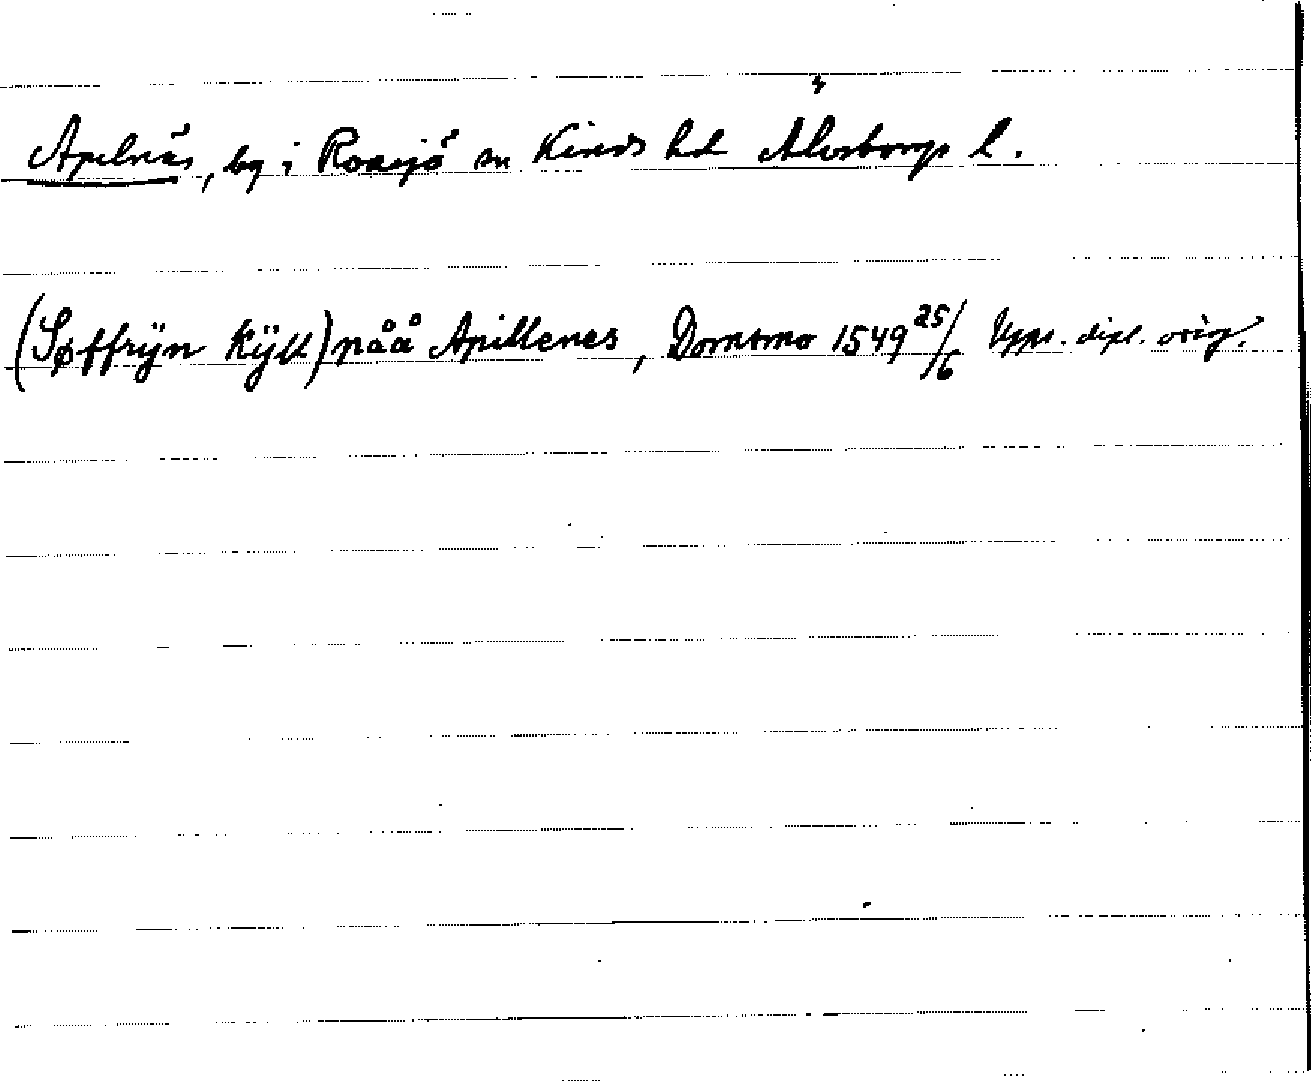 Apelnäs, by i Roasjö sn Kinds hd Älvsborgs l.
(Søffrÿn Kÿll) påå Apillenes, Dornsmo 1549 25/6 Upps. dipl. orig.